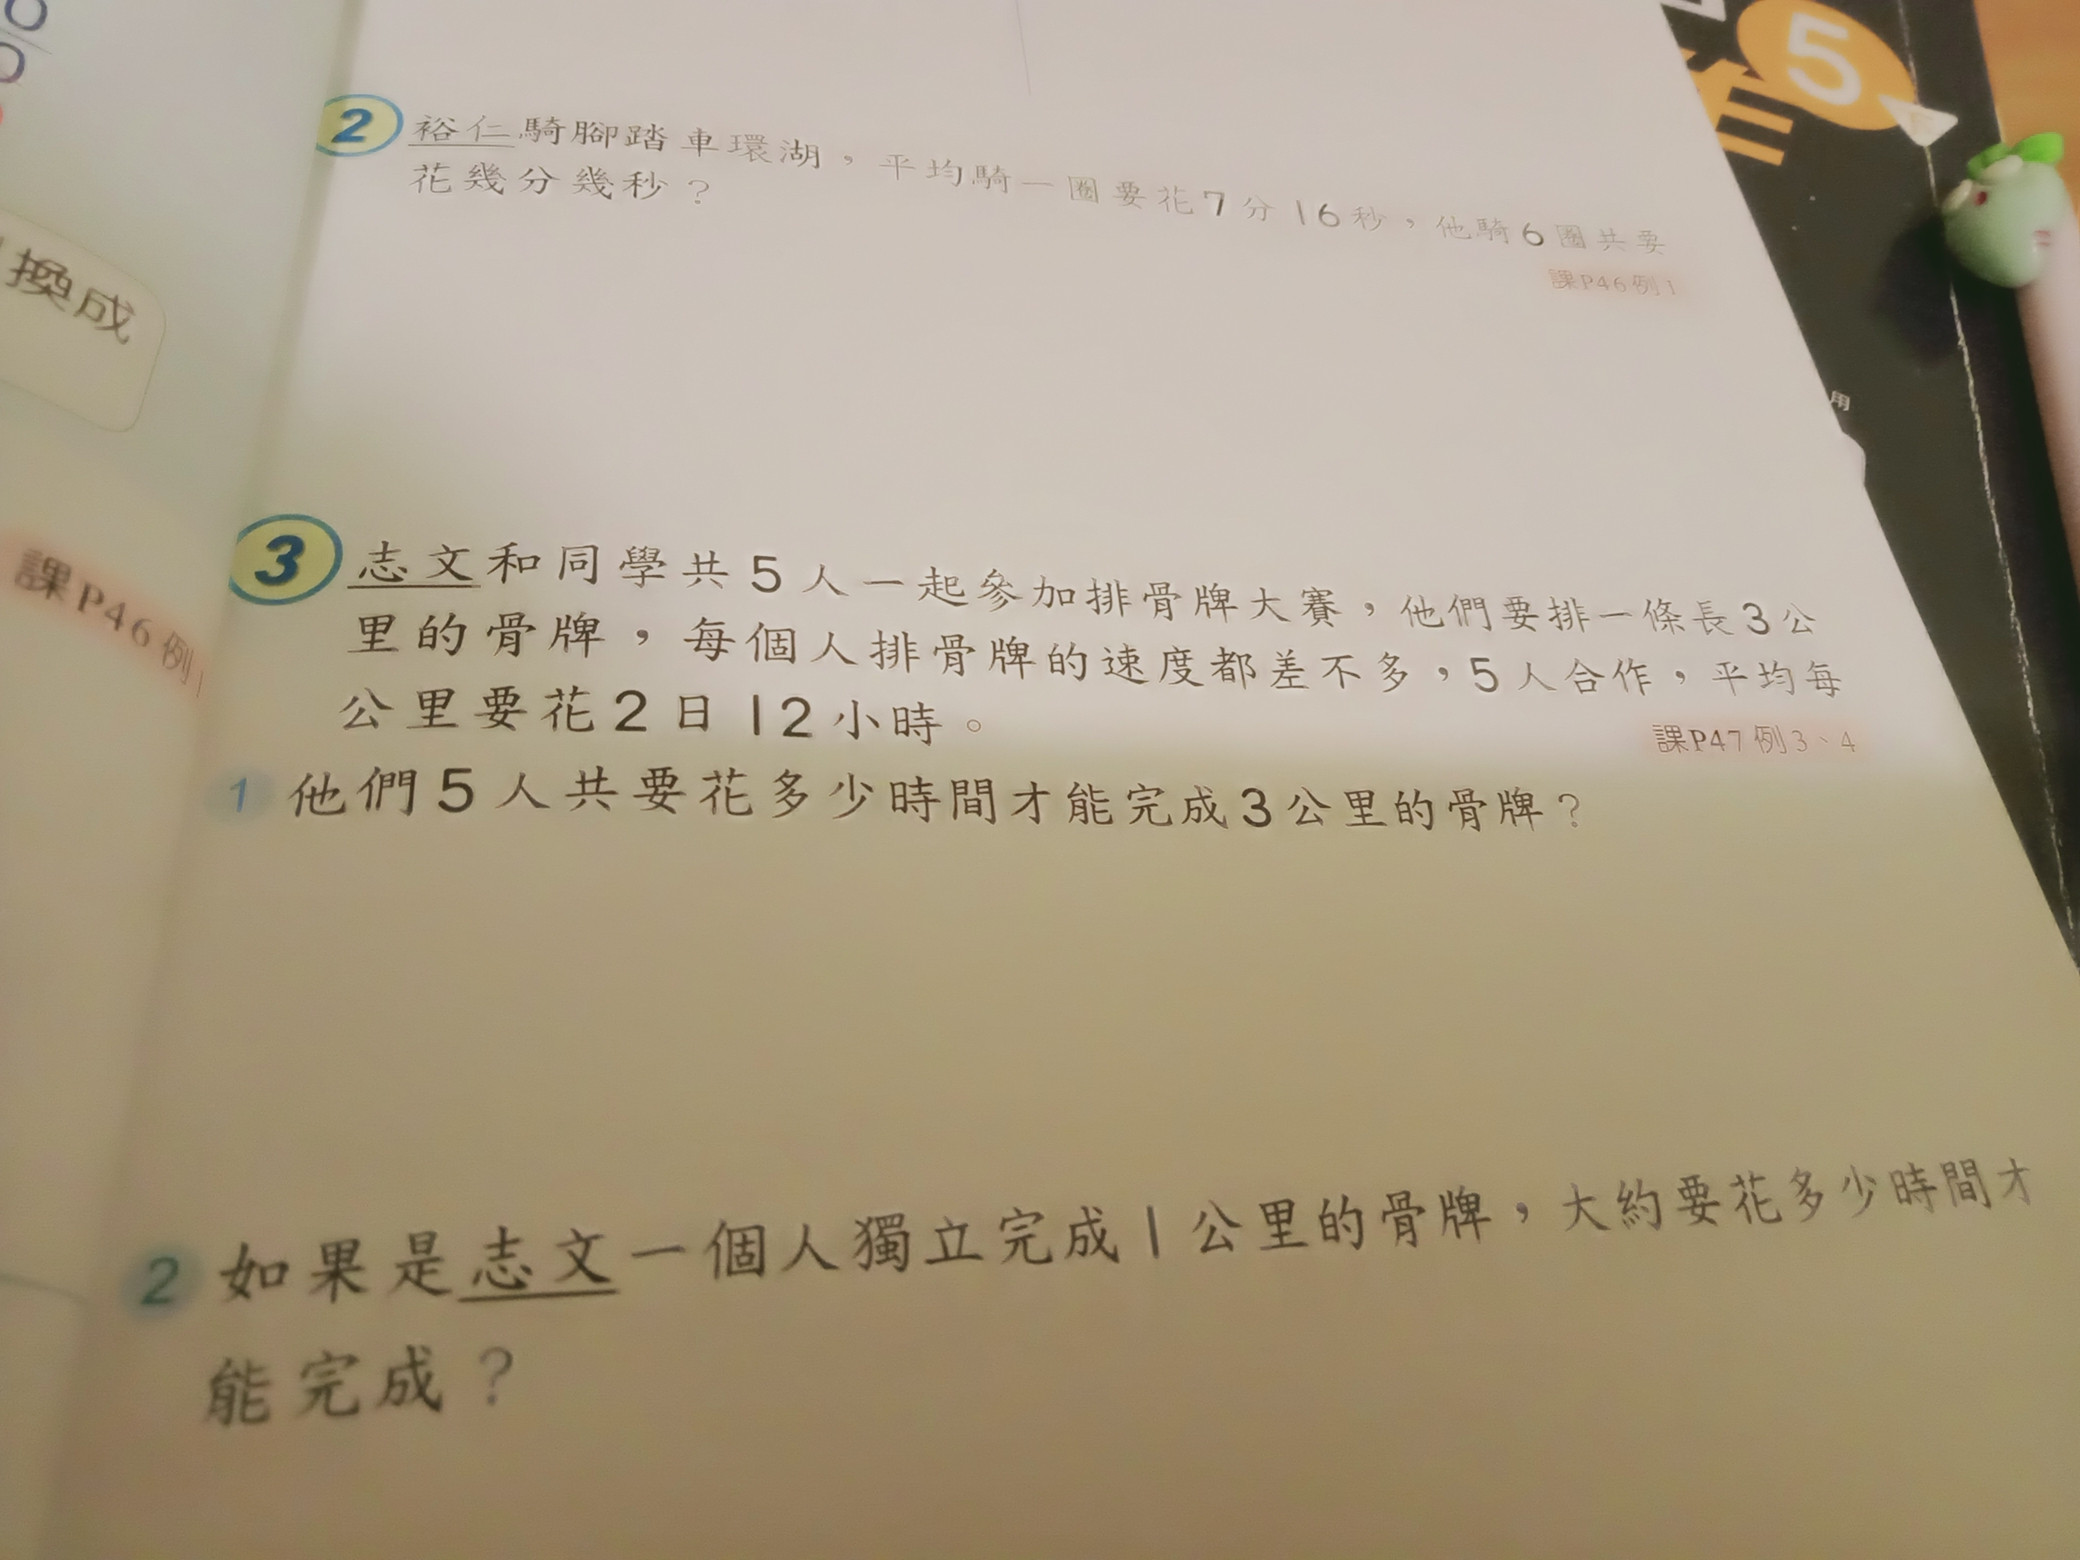 換成
課P46例1
2 裕仁騎腳踏車環湖，平均騎一圈要花7分16秒，他騎6圈共要
花幾分幾秒？
課P46例1
3 志文和同學共5人一起參加排骨牌大賽，他們要排一條長3公
里的骨牌，每個人排骨牌的速度都差不多，5人合作，平均每
公里要花2日12小時。
課P47例3、4
1 他們5人共要花多少時間才能完成3公里的骨牌？
2 如果是志文一個人獨立完成1公里的骨牌，大約要花多少時間才
能完成？
5
用